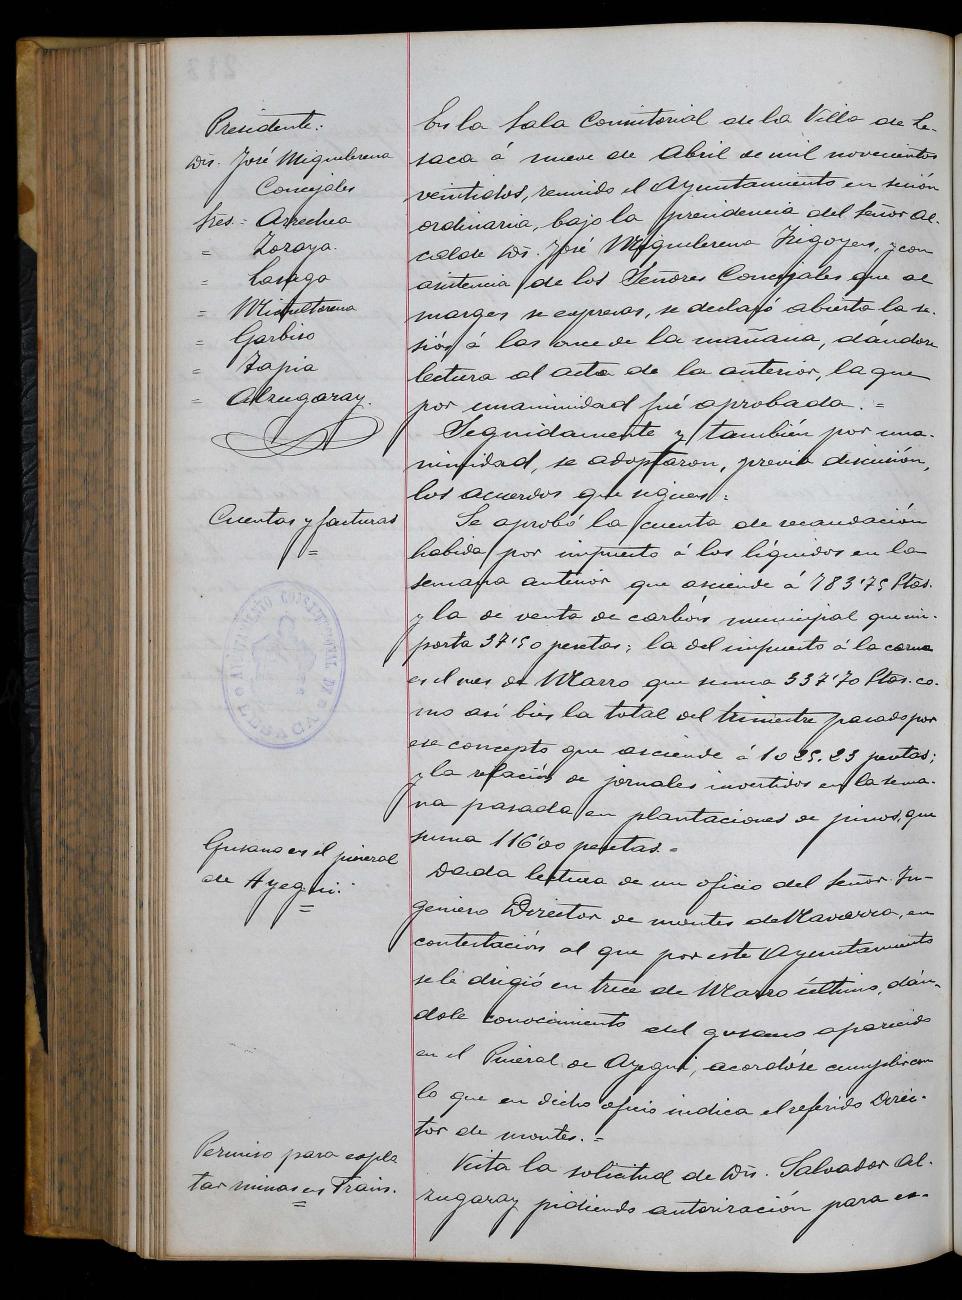 Presidente:
Dn. José Miguelerena
Concejales
Sres = Arrechea
= Zoraya.
= Lasaga
= Miguelterena
= Garbiso
= Tapia
= Alzugaray.
En la Sala Consistorial de la Villa de Le-
saca á nueve de Abril de mil novecientos
veintidos, reunido el Ayuntamiento en sesión
ordinaria, bajo la presidencia del Señor Al-
calde Dn. José Miguelerena Irigoyen, y con
asistencia de los Señores Concejales que al
margen se expresan, se declaró abierta la se-
sión á las once de la mañana, dándose
lectura al acta de la anterior, la que
por unanimidad fué aprobada. =
Seguidamente y también por una-
nimidad, se adoptaron, previa discusión,
los acuerdos que siguen:
Cuentas y facturas
=
Se aprobó la cuenta de recaudación
habida por impuesto á los líquidos en la
semana anterior que asciende á 783'75 Ptas.
y la de venta de carbón municipal que im-
porta 37'50 pesetas; la del impuesto á la carne
en el mes de Marzo que suma 337'70 Ptas. co-
mo así bien la total del trimestre pasado por
ese concepto que asciende á 1025.23 pesetas;
y la relación de jornales invertidos en la sema-
na pasada en plantaciones de pinos, que
suma 116'00 pesetas. =
AYUNTAMIENTO CONSTITUCIONAL DE
LESACA
Gusano en el pineral
de Ayegui.
=
Dada lectura de un oficio del Señor In-
geniero Director de montes de Navarra, en
contestación al que por este Ayuntamiento
se le dirigió en trece de Marzo último, dán-
dole conocimiento del gusano aparecido
en el Pineral de Ayegui, acordóse cumplir con
lo que en dicho oficio indica el referido Direc-
tor de montes. =
Permiso para explo
tar minas en Frain.
=
Vista la solicitud de Dn. Salvador Al-
zugaray pidiendo autorización para ex-